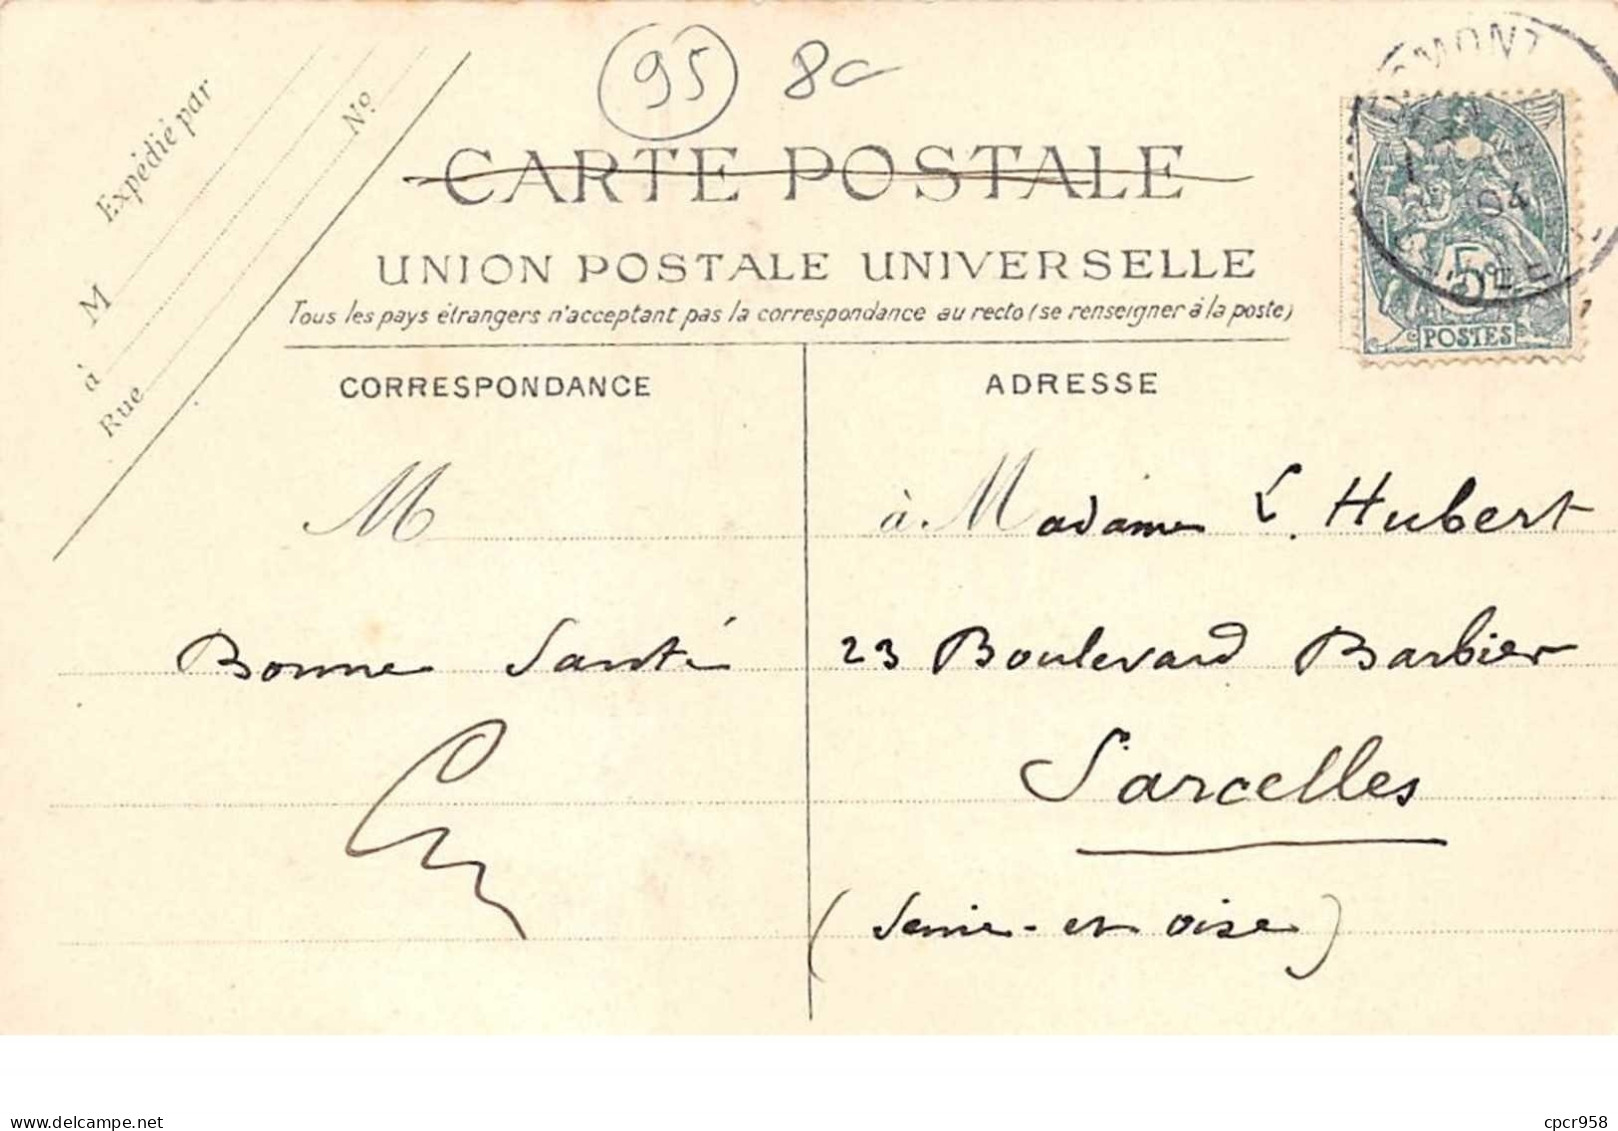 95 8c
Expédié par
No
M
à
Rue
CARTE POSTALE
UNION POSTALE UNIVERSELLE
Tous les pays étrangers n'acceptent pas la correspondance au recto (se renseigner à la poste)
CORRESPONDANCE
M
Bonne Santé
ADRESSE
à Madame L. Hubert
23 Boulevard Barbier
Sarcelles
(Seine-et Oise)
04
5c
POSTES
www.delcampe.net
cpcr958